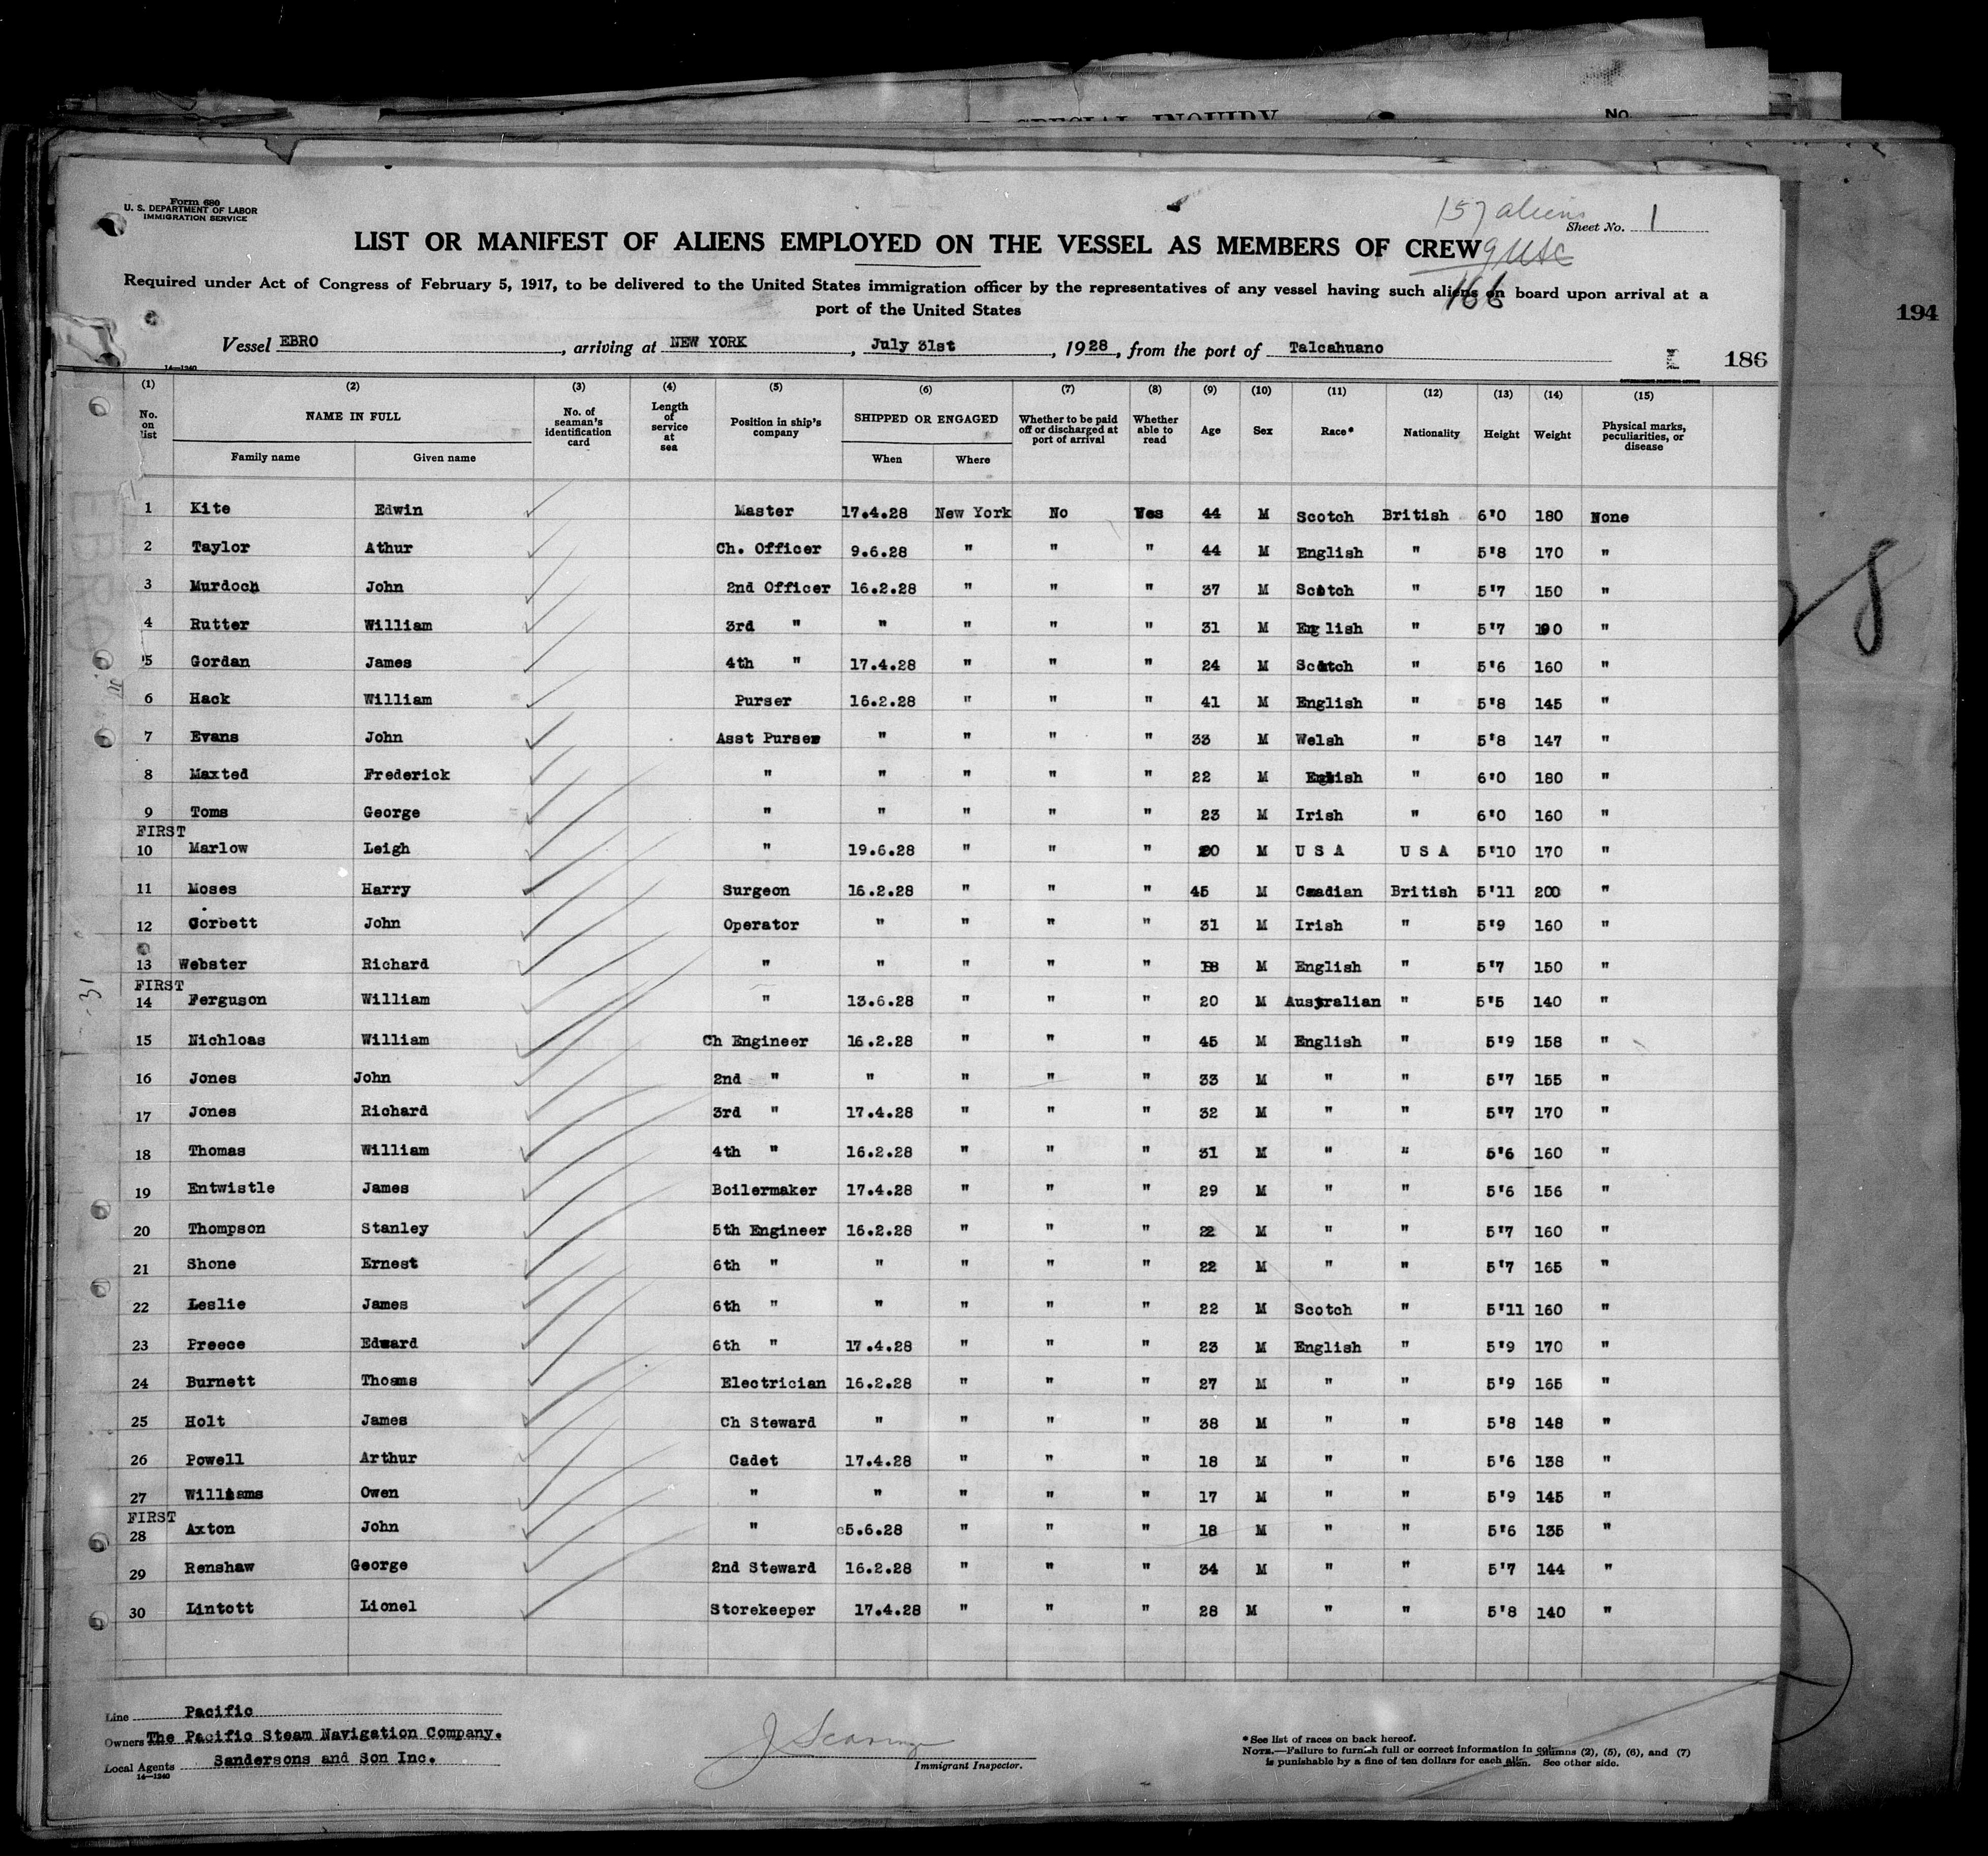 SPECIAL INQUIRY
No.
Form 680
U. S. DEPARTMENT OF LABOR
IMMIGRATION SERVICE
157 aliens
Sheet No. 1
LIST OR MANIFEST OF ALIENS EMPLOYED ON THE VESSEL AS MEMBERS OF CREW
9 USC
166
Required under Act of Congress of February 5, 1917, to be delivered to the United States immigration officer by the representatives of any vessel having such aliens on board upon arrival at a
port of the United States
194
Vessel EBRO, arriving at NEW YORK, July 31st, 1928, from the port of Talcahuano
186
14—1240
(1) (2) (3) (4) (5) (6) (7) (8) (9) (10) (11) (12) (13) (14) (15)
No. on list NAME IN FULL No. of seaman's identification card Length of service at sea Position in ship's company SHIPPED OR ENGAGED Whether to be paid off or discharged at port of arrival Whether able to read Age Sex Race* Nationality Height Weight Physical marks, peculiarities, or disease
Family name Given name When Where
1 Kite Edwin Master 17.4.28 New York No Yes 44 M Scotch British 6'0 180 None
2 Taylor Athur Ch. Officer 9.6.28 " " " 44 M English " 5'8 170 "
3 Murdoch John 2nd Officer 16.2.28 " " " 37 M Scotch " 5'7 150 "
4 Rutter William 3rd " " " " " 31 M English " 5'7 190 "
5 Gordan James 4th " 17.4.28 " " " 24 M Scotch " 5'6 160 "
6 Hack William Purser 16.2.28 " " " 41 M English " 5'8 145 "
7 Evans John Asst Purser " " " " 33 M Welsh " 5'8 147 "
8 Maxted Frederick " " " " " 22 M English " 6'0 180 "
9 Toms George " " " " " 23 M Irish " 6'0 160 "
FIRST
10 Marlow Leigh " 19.6.28 " " " 20 M U S A U S A 5'10 170 "
11 Moses Harry Surgeon 16.2.28 " " " 45 M Canadian British 5'11 200 "
12 Corbett John Operator " " " " 31 M Irish " 5'9 160 "
13 Webster Richard " " " " " 18 M English " 5'7 150 "
FIRST
14 Ferguson William " 13.6.28 " " " 20 M Australian " 5'5 140 "
15 Nichloas William Ch Engineer 16.2.28 " " " 45 M English " 5'9 158 "
16 Jones John 2nd " " " " " 33 M " " 5'7 155 "
17 Jones Richard 3rd " 17.4.28 " " " 32 M " " 5'7 170 "
18 Thomas William 4th " 16.2.28 " " " 31 M " " 5'6 160 "
19 Entwistle James Boilermaker 17.4.28 " " " 29 M " " 5'6 156 "
20 Thompson Stanley 5th Engineer 16.2.28 " " " 22 M " " 5'7 160 "
21 Shone Ernest 6th " " " " " 22 M " " 5'7 165 "
22 Leslie James 6th " " " " " 22 M Scotch " 5'11 160 "
23 Preece Edward 6th " 17.4.28 " " " 23 M English " 5'9 170 "
24 Burnett Thoams Electrician 16.2.28 " " " 27 M " " 5'9 165 "
25 Holt James Ch Steward " " " " 38 M " " 5'8 148 "
26 Powell Arthur Cadet 17.4.28 " " " 18 M " " 5'6 138 "
27 Williams Owen " " " " " 17 M " " 5'9 145 "
FIRST
28 Axton John " 5.6.28 " " " 18 M " " 5'6 135 "
29 Renshaw George 2nd Steward 16.2.28 " " " 34 M " " 5'7 144 "
30 Lintott Lionel Storekeeper 17.4.28 " " " 28 M " " 5'8 140 "
Line Pacific
Owners The Pacific Steam Navigation Company.
Local Agents Sandersons and Son Inc.
14—1240
Immigrant Inspector.
*See list of races on back hereof.
NOTE.—Failure to furnish full or correct information in columns (2), (5), (6), and (7)
is punishable by a fine of ten dollars for each alien. See other side.